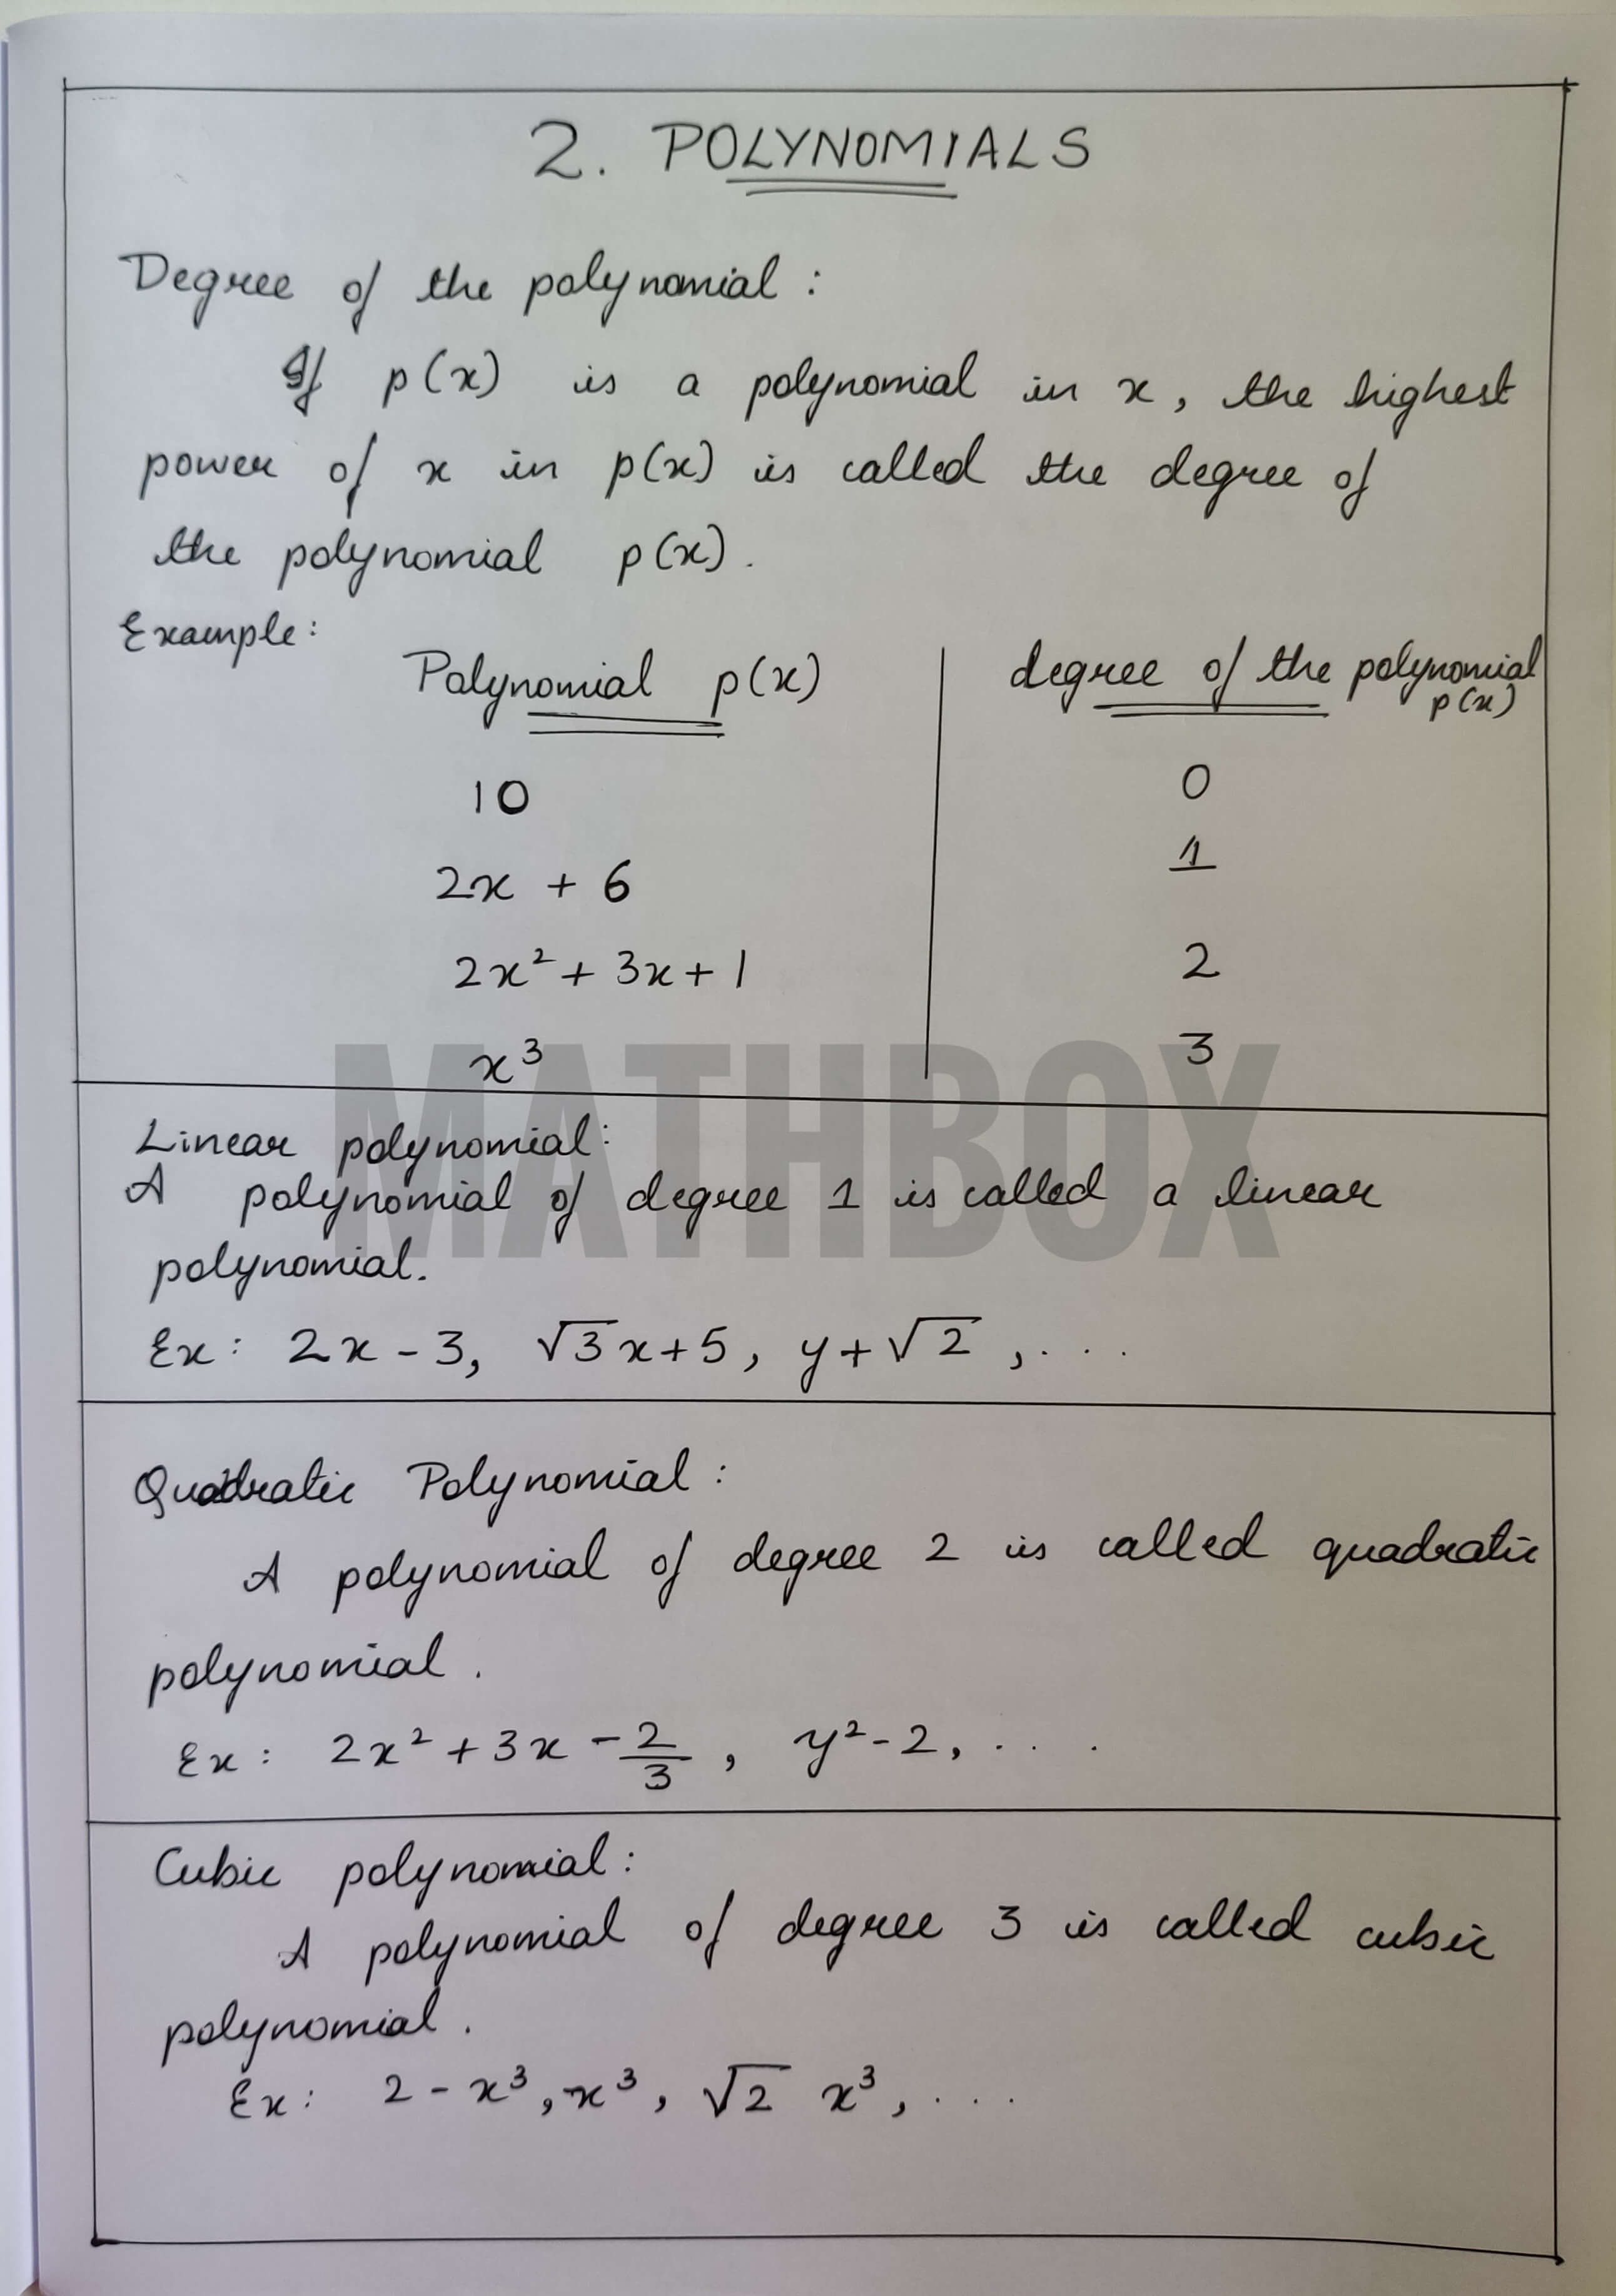 2. POLYNOMIALS
Degree of the polynomial :
If p(x) is a polynomial in x, the highest
power of x in p(x) is called the degree of
the polynomial p(x).
Example:
Polynomial p(x) degree of the polynomial p(x)
10 0
2x + 6 1
2x² + 3x + 1 2
x³ 3
MATHBOX
Linear polynomial:
A polynomial of degree 1 is called a linear
polynomial.
Ex: 2x - 3, √3x+5, y+√2, ...
Quadratic Polynomial :
A polynomial of degree 2 is called quadratic
polynomial.
Ex: 2x² + 3x - 2/3, y²-2, ...
Cubic polynomial :
A polynomial of degree 3 is called cubic
polynomial.
Ex: 2 - x³, x³, √2 x³, ...